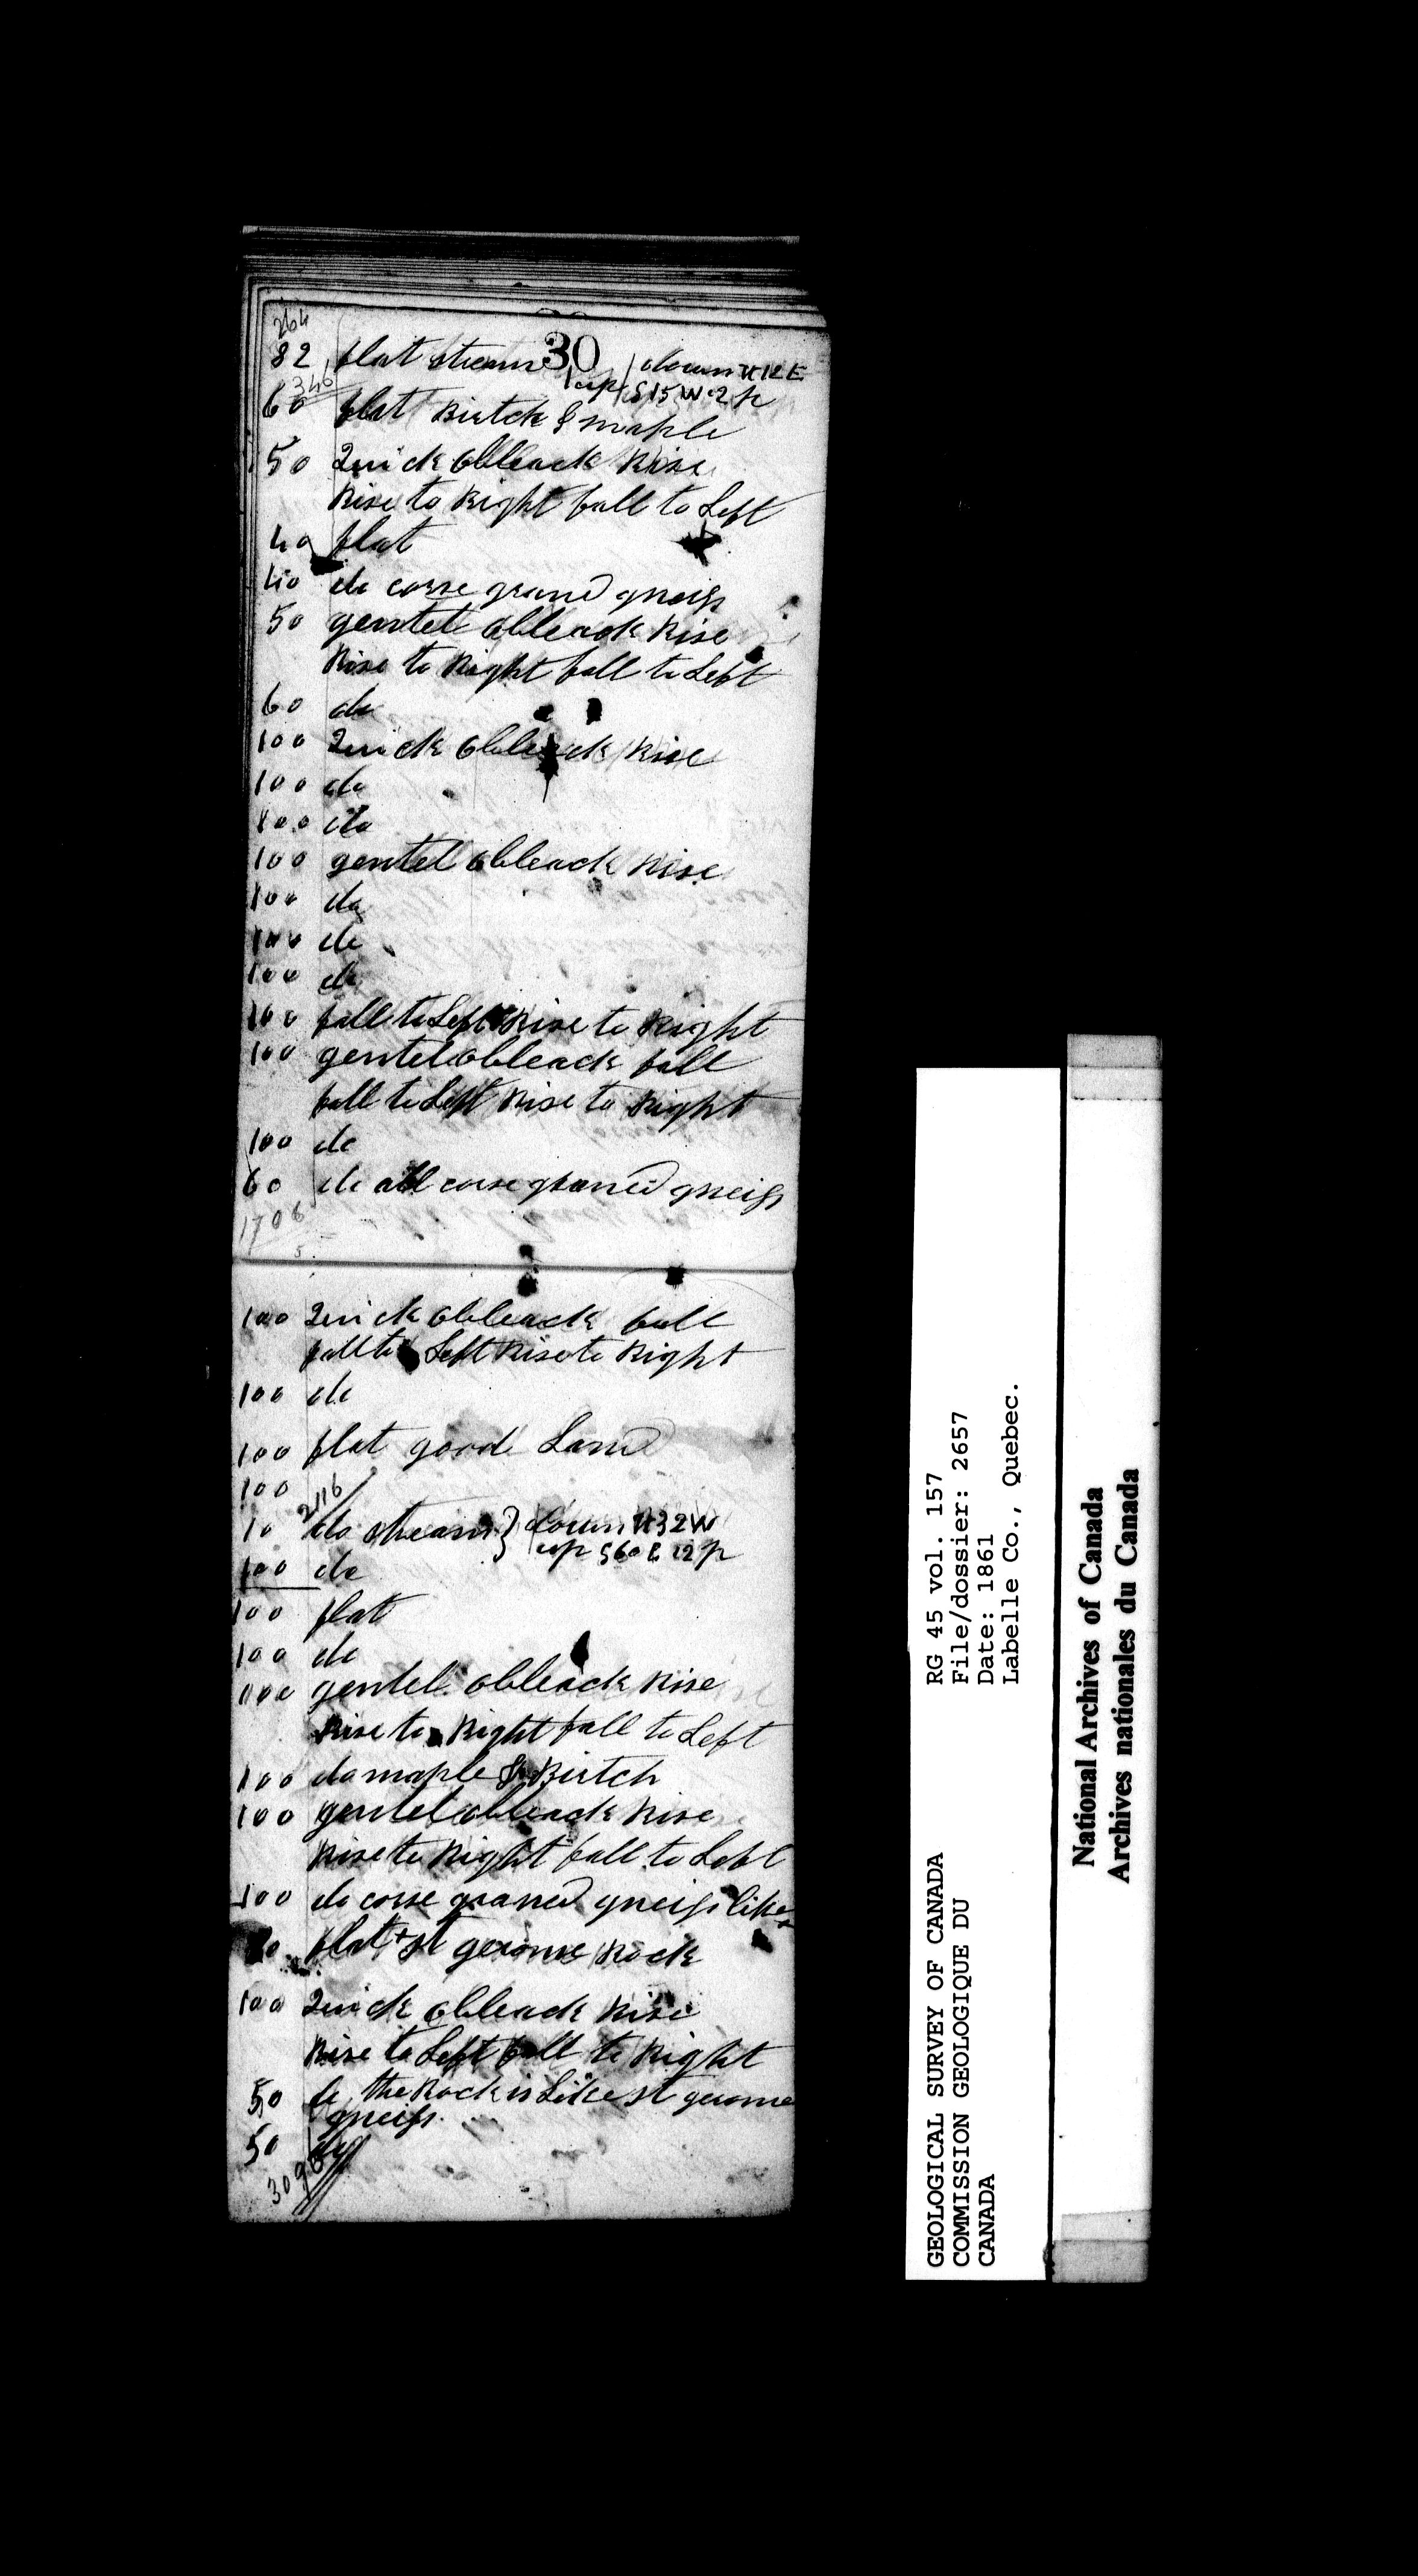 264
30
82 flat stream down N 12 E
346 up S 15 W 2 p
60 flat Birtch & maple
50 Quick obleack Rise
Rise to Right fall to Left
40 flat
40 do corse grand gneiss
50 gentel obleack Rise
Rise to Right fall to Left
60 do
100 Quick obleack Rise
100 do
100 do
100 gentel obleack Rise
100 do
100 do
100 do
100 fall to Left Rise to Right
100 gentel obleack fall
fall to Left Rise to Right
100 do
60 do all corse graned gneiss
1706
5
100 Quick obleack fall
fall to Left Rise to Right
100 do
100 flat good Land
100
2116
10 do stream } down N 32 W
up S 60 E 12 p
100 do
100 flat
100 do
100 gentel obleack Rise
Rise to Right fall to Left
100 do maple & Birtch
100 gentel obleack Rise
Rise to Right fall to Left
100 do corse graned gneiss like
flat + st gerome Rock
100 Quick obleack Rise
Rise to Left fall to Right
50 do the Rock is Like st gerome
gneiss
50 do
RG 45 vol. 157
File/dossier: 2657
Date: 1861
Labelle Co., Quebec.
GEOLOGICAL SURVEY OF CANADA
COMMISSION GEOLOGIQUE DU
CANADA
National Archives of Canada
Archives nationales du Canada